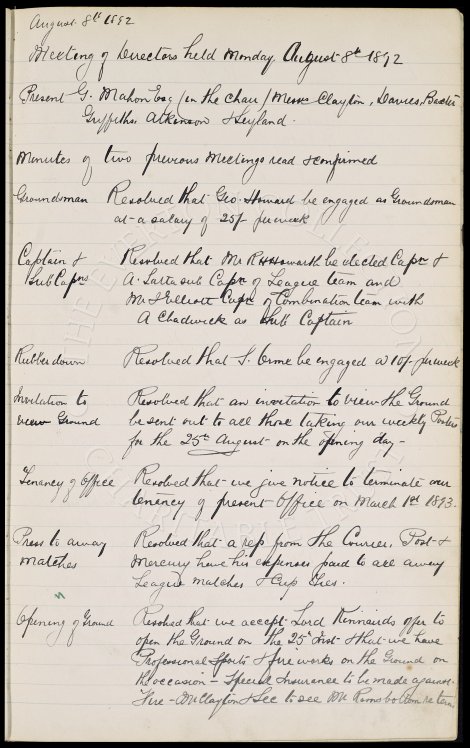 August 8th 1892
Meeting of Directors held Monday, August 8th 1892
Present G. Mahon Esq (in the chair) Messrs Clayton, Davies, Baxter
Griffiths Atkinson & Leyland.
Minutes of two previous Meetings read & confirmed
Groundsman Resolved that Geo. Howard be engaged as Groundsman
at a salary of 25/- per week
Captain & Resolved that Mr R H Howarth be elected Capn &
Sub Capns A. Latta sub Capn of League team and
Mr J Elliott Capn of Combination team with
A Chadwick as Sub Captain
Rubber down Resolved that J. Orme be engaged @ 10/- per week
Invitation to Resolved that an invitation to view the Ground
view Ground be sent out to all those taking our weekly Posters
for the 25th August on the opening day -
Tenancy of Office Resolved that we give notice to terminate our
tenancy of present Office on March 1st 1893.
Press to away Resolved that a rep from the Courier, Post &
matches Mercury have his expenses paid to all away
League matches & Cup Ties.
Opening of Ground Resolved that we accept Lord Kinnairds offer to
open the Ground on the 25th Inst & that we have
Professional Sports & fireworks on the Ground on
the occasion - Special Insurance to be made against
Fire - Mr Clayton & Sec to see Mr Ramsbottom re